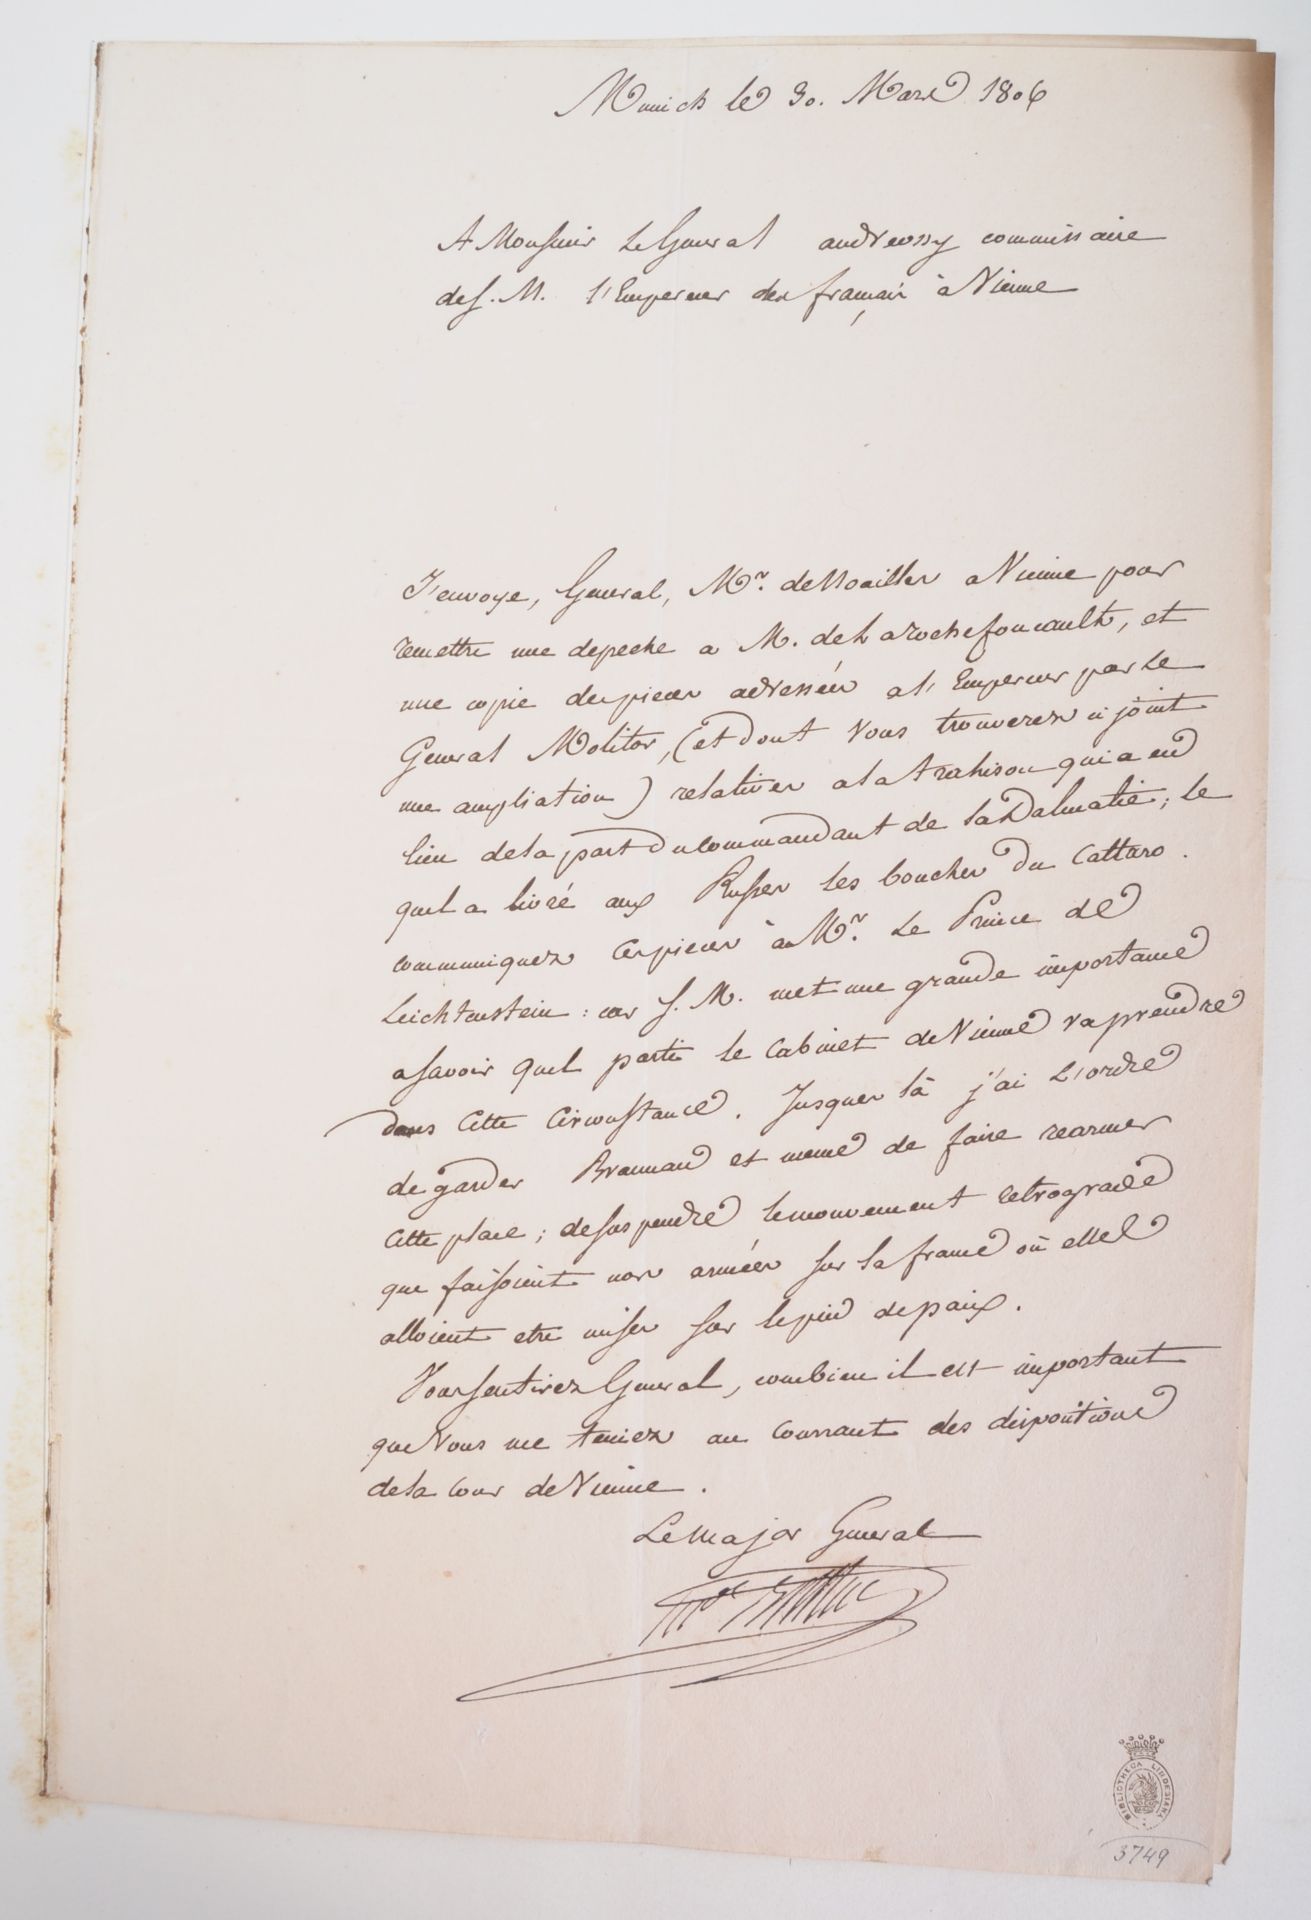 Munich le 30. Mars 1806
A Monsieur Le General andreossy commissaire
de S. M. l'Empereur des français à Vienne
J'envoye, General, Mr. de Noailles a Vienne pour
remettre une depeche a M. de Larochefoucault, et
une copie des pieces adressées a l'Empereur par Le
General Molitor, (et dont vous trouverez ci joint
une ampliation) relatives a la trahison qui a eu
lieu de la part du commandant de la Dalmatie; le
quel a livré aux Russes les bouches du Cattaro.
communiquez ces pieces à Mr. Le Prince de
Leichtenstein: car S. M. met une grande importance
a savoir quel parti le Cabinet de Vienne va prendre
dans cette circonstance. Jusques là j'ai L'ordre
de garder Braunau et meme de faire rearmer
cette place; de suspendre le mouvement retrograde
que faisoient nos armées sur la france où elles
alloient etre mises sur le pied de paix.
Vous sentirez General, combien il est important
que vous me teniez au courrant des dispositions
de la cour de Vienne.
Le Major General
Mal Berthier
BIBLIOTHECA LINDESIANA
3749